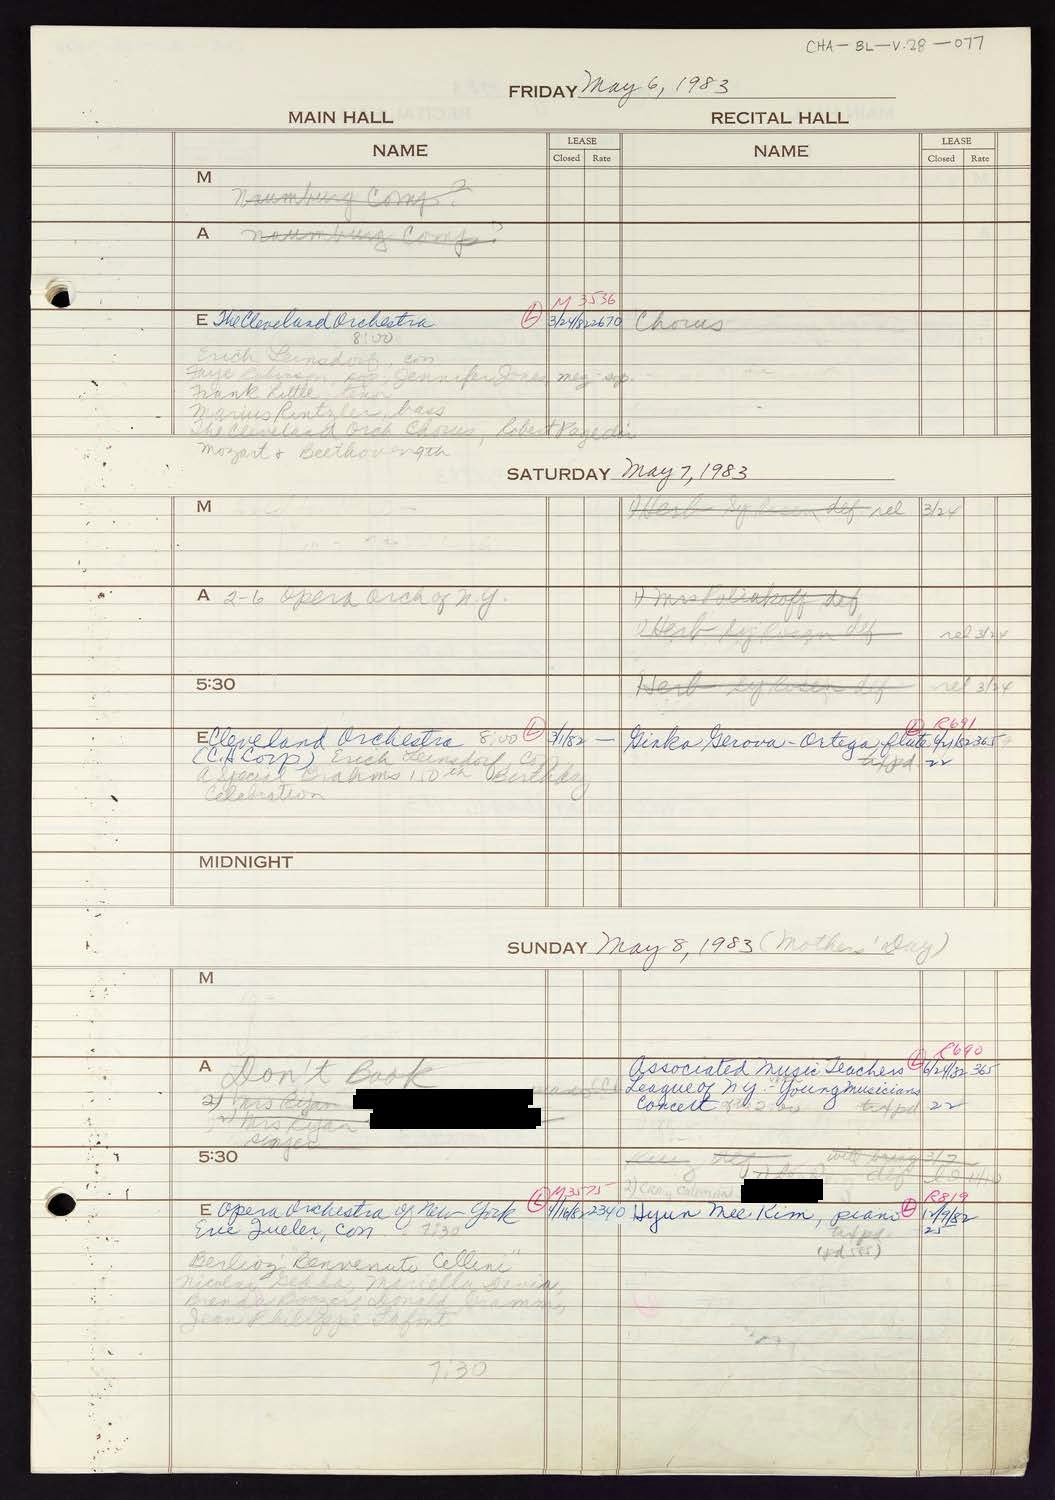 CHA-BL-V.28-077
FRIDAY May 6, 1983
MAIN HALL RECITAL HALL
NAME LEASE Closed Rate NAME LEASE Closed Rate
M
Naumburg Comp?
A Naumburg Comp?
M 3536
E The Cleveland Orchestra L 3/24/82 2670 Chorus
8:00
Erich Leinsdorf, con
Faye Robinson, sop, Jennifer Jones mez-sop.
Frank Little, tenor
Marius Rintzler, bass
The Cleveland Orch Chorus, Robert Page dir
Mozart & Beethoven 9th
SATURDAY May 7, 1983
M 1) Herb def rel 3/24
A 2-6 Opera Orch of N.Y. 1) Mrs Poliakoff def
1) Herb def rel 3/24
5:30 Herb def rel 3/24
R691
E Cleveland Orchestra 8:00 L 3/1/82 — Ginka Gerova-Ortega, flute L 365
(C.H. Corp) Erich Leinsdorf, Con tax pd 22
A Special Brahms 150th Birthday
Celebration
MIDNIGHT
SUNDAY May 8, 1983 (Mothers' Day)
M
R690
A Don't Book Associated Music Teachers L 6/24/82 365
2) Mrs Ryan League of NY - Young Musicians
2) Mrs Ryan Concert 2:00 tax pd 22
singer
5:30 def will bring 3/7
def
2) Craig
M3575 R819
E Opera Orchestra of New York L 4/16/82 2340 Hyun Mee Kim, piano L 12/9/82
Eve Queler, con 7:30 tax pd 25
(pd 585)
Berlioz "Benvenuto Cellini"
Nicolai Gedda, Mariella Devia,
Brenda Boozer, Donald Gramm,
Jean Philippe Lafont
7:30